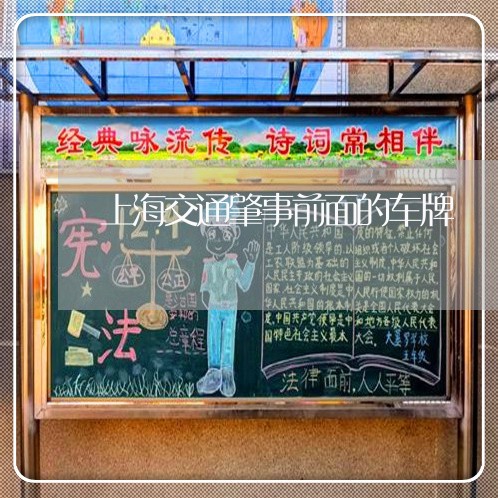 经典咏流传 诗词常相伴
上海交通肇事前面的车牌
宪法
公平
公正
总章程
中华人民共和国
是工人阶级领导的,以
工农联盟为基础的
人民民主专政的社会主义
国家,社会主义制度是中
华人民共和国的根本制
度,中国共产党领导是中
国特色社会主义最本
质的特征,禁止任何
组织或者个人破坏社会
主义制度,中华人民共和
国的一切权利属于人民,
人民行使国家权力的机
关是全国人民代表大会
和地方各级人民代表
大会。
五年级
法律面前,人人平等